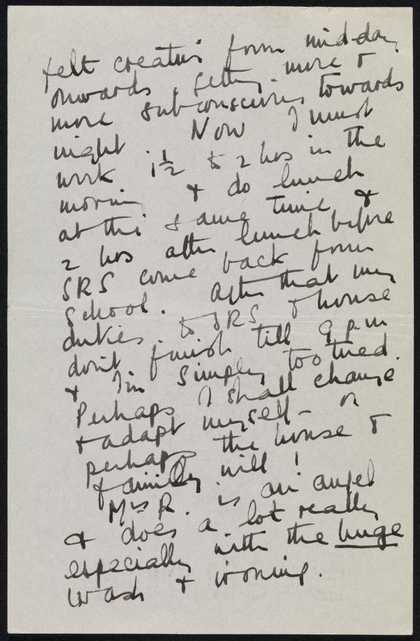 felt creative from mid-day
onwards, getting more &
more subconscious towards
night. Now I must
work 1½ to 2 hrs in the
morning & do lunch
at the same time &
2 hrs after lunch before
SRS come back from
School. After that my
duties to SRS & house
don't finish till 9 pm
& I'm simply too tired.
Perhaps I shall change
& adapt myself - or
perhaps the house &
family will!
Mrs R. is an angel
& does a lot really
especially with the huge
wash & ironing.